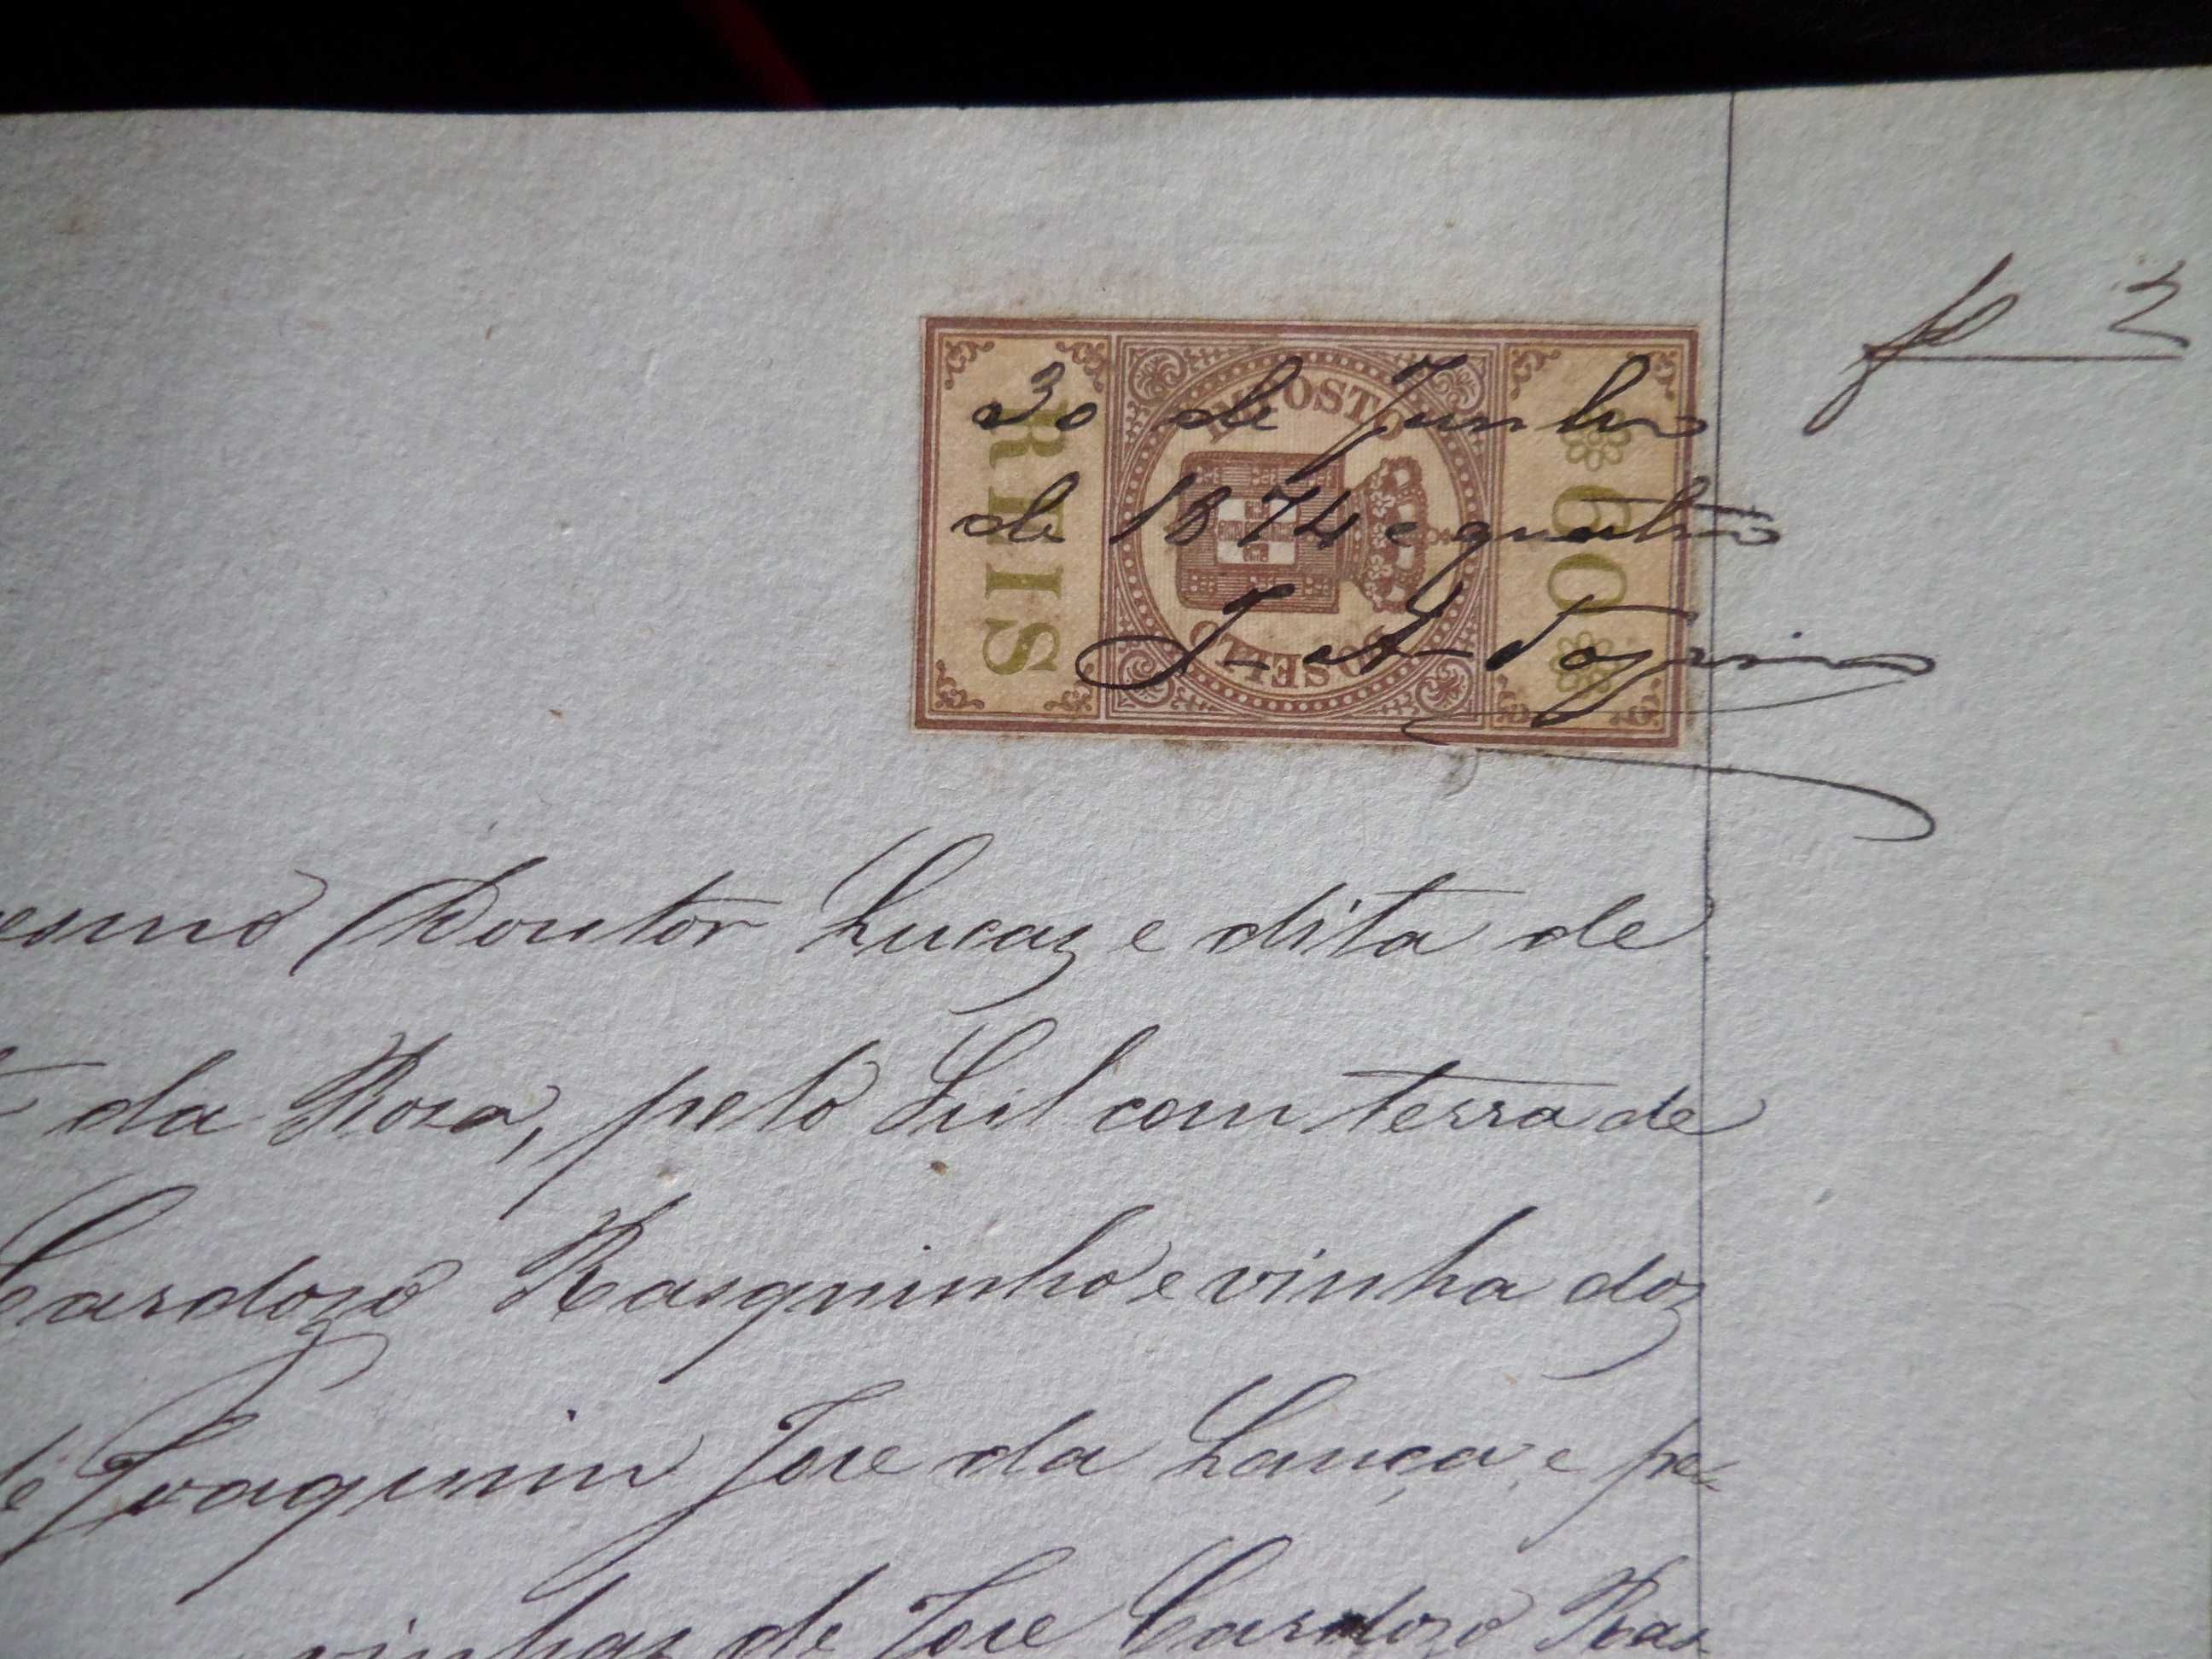 IMPOSTO DO SELLO
60
REIS
30 de Junho
de 1874 e quatro
J. A.
fl 2
esmo Doutor Lucaz e dita de
da Roza, pelo Sul com terra de
Cardozo Rasquinho e vinha doz
de Joaquim Jose da Lança, e pe-
vinhas de Jose Cardozo Ras-